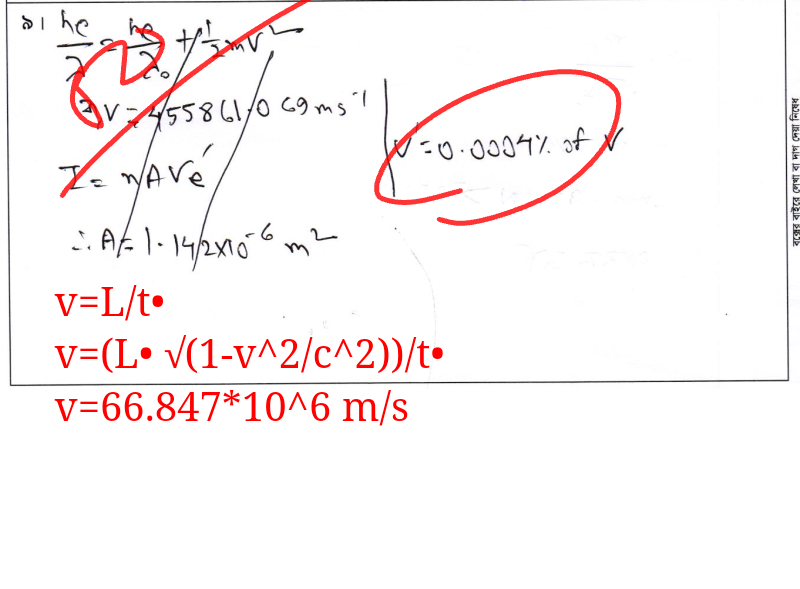 ৯। hc/λ = hc/λ₀ + 1/2 mv²
⇒ V = 455861.069 ms⁻¹
I = nAVe
∴ A = 1.142×10⁻⁶ m²
V' = 0.0004% of V
v=L/t•
v=(L• √(1-v^2/c^2))/t•
v=66.847*10^6 m/s
বক্সের বাইরে লেখা বা দাগ দেয়া নিষেধ